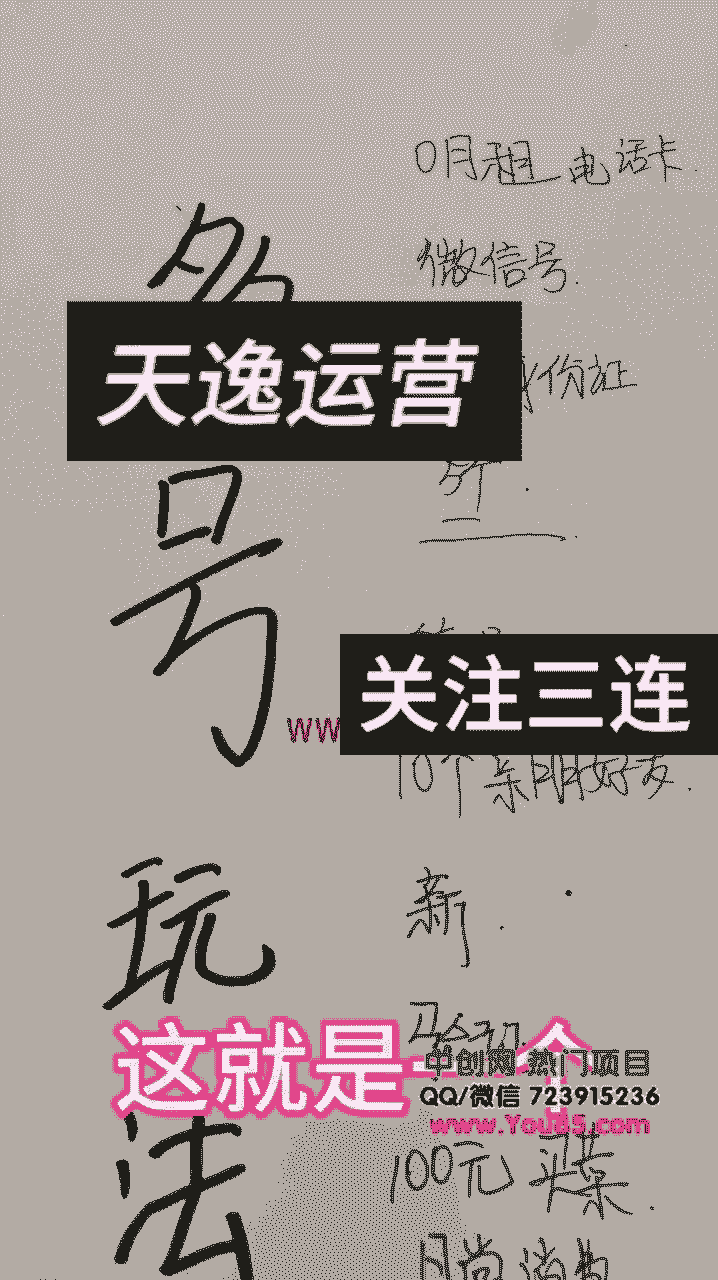 0月租 电话卡
微信号
份证
天逸运营
号
关注三连
10个亲朋好友
新
玩
这就是一个
中创网 热门项目
QQ/微信 723915236
www.You85.com
法
100元 买菜
日常消费